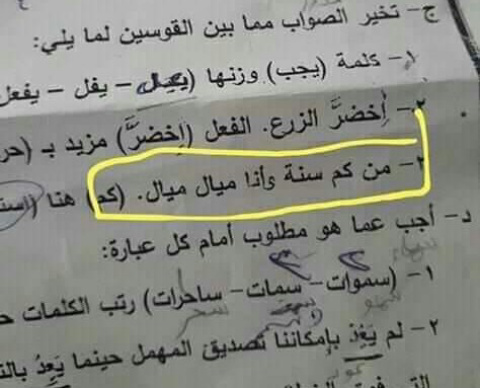 ج- تخير الصواب مما بين القوسين لما يلي:
١- كلمة (يجب) وزنها (يعل – يفل – يفعل
٢- أخضرَّ الزرع. الفعل (إخضرَّ) مزيد بـ (حر
٣- من كم سنة وأنا ميال ميال. (كم) هنا (است
د- أجب عما هو مطلوب أمام كل عبارة:
١- (سموات- سمات- ساحرات) رتب الكلمات
٢- لم يَعُدْ بإمكاننا تصديق المهمل حينما يَعِدُ